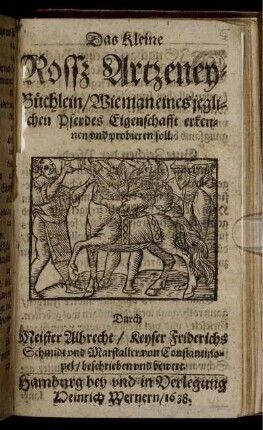 Das Kleine
Rossz Artzeney-
Büchlein / Wie man eines jegli-
chen Pferdes Eigenschafft erken-
nen und probieren soll.
Durch
Meister Albrecht / Keyser Friderichs
Schmidt und Marstaller von Constantino-
pel / beschrieben und bewere.
Hamburg bey und in Verlegung
Heinrich Wernern / 1638.